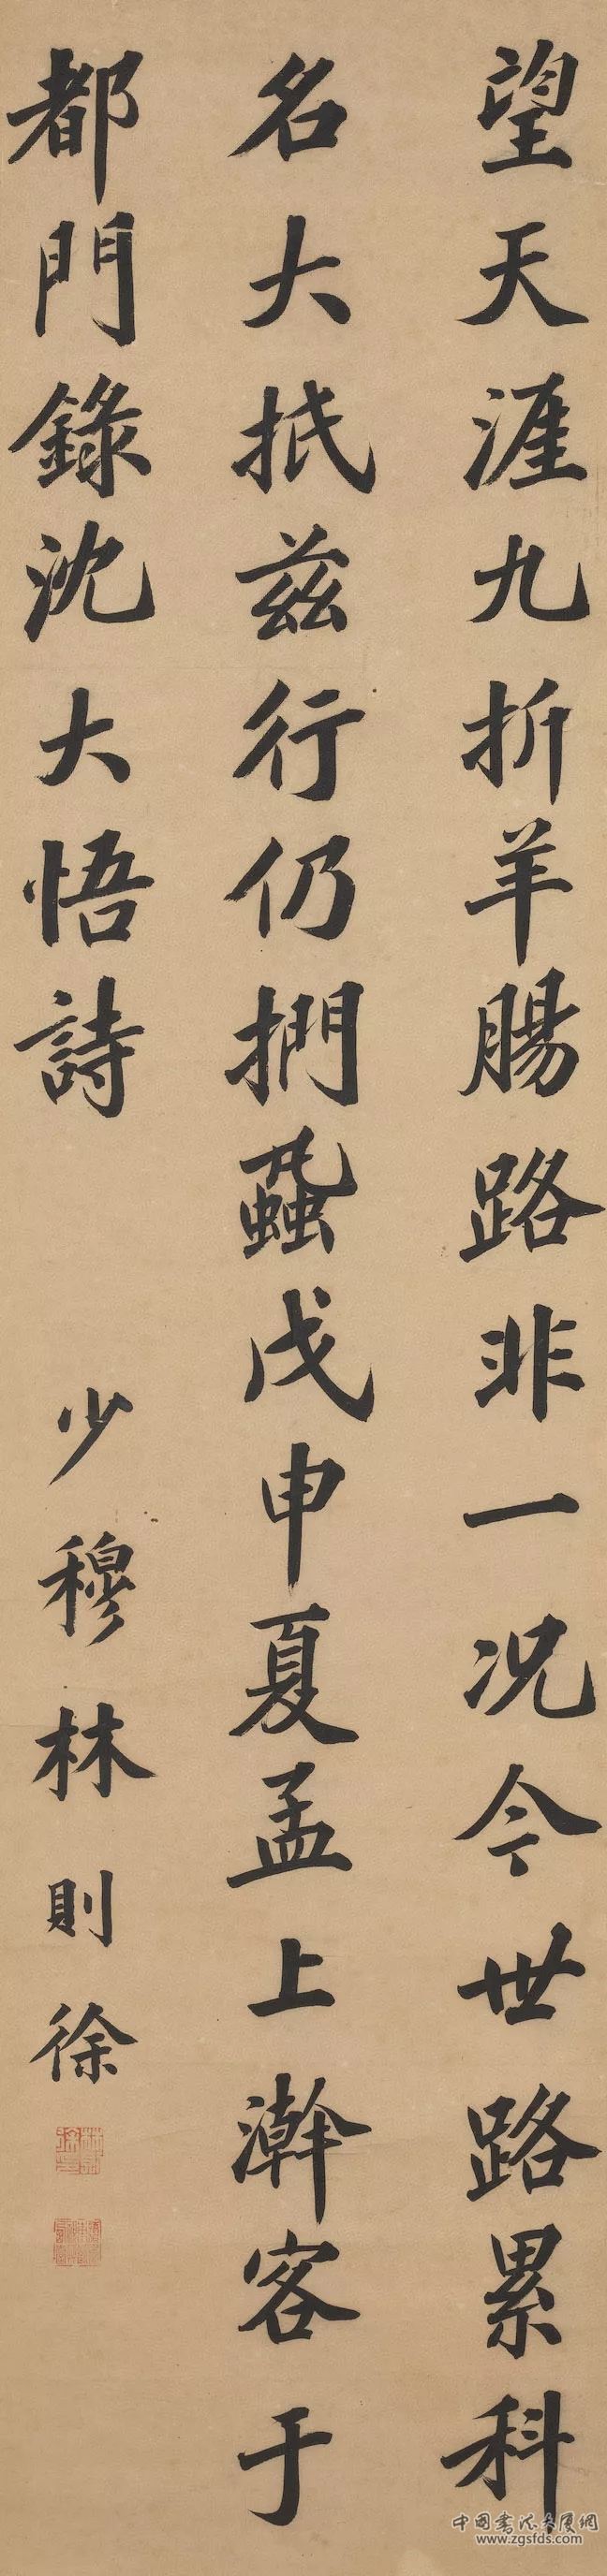 望天涯九折羊腸路非一況今世路累科
名大抵兹行仍捫蝨戊申夏孟上澣客于
都門錄沈大悟詩
少穆林則徐
中國書法大厦網
www.zgsfds.com